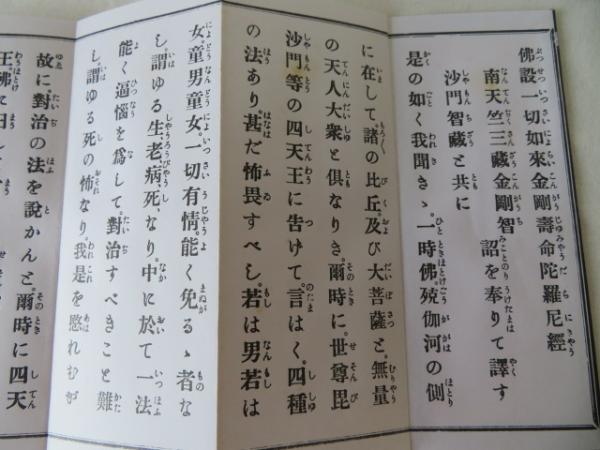 佛說一切如來金剛壽命陀羅尼經
南天竺三藏金剛智 詔を奉りて譯す
沙門智藏と共に
是の如く我聞きゝ。一時佛。殑伽河の側
に在して。諸の比丘。及び大菩薩と。無量
の天人大衆と倶なりき。爾時に。世尊毘
沙門等の四天王に告げて。言はく。四種
の法あり。甚だ怖畏すべし。若は男若は
女童男童女。一切有情。能く免るゝ者な
し。謂ゆる生老病死。なり。中に於て一法
能く逼惱を爲して。對治すべきこと難
し。謂ゆる死の怖なり。我是を愍れむが
故に。對治の法を說かんと。爾時に四天